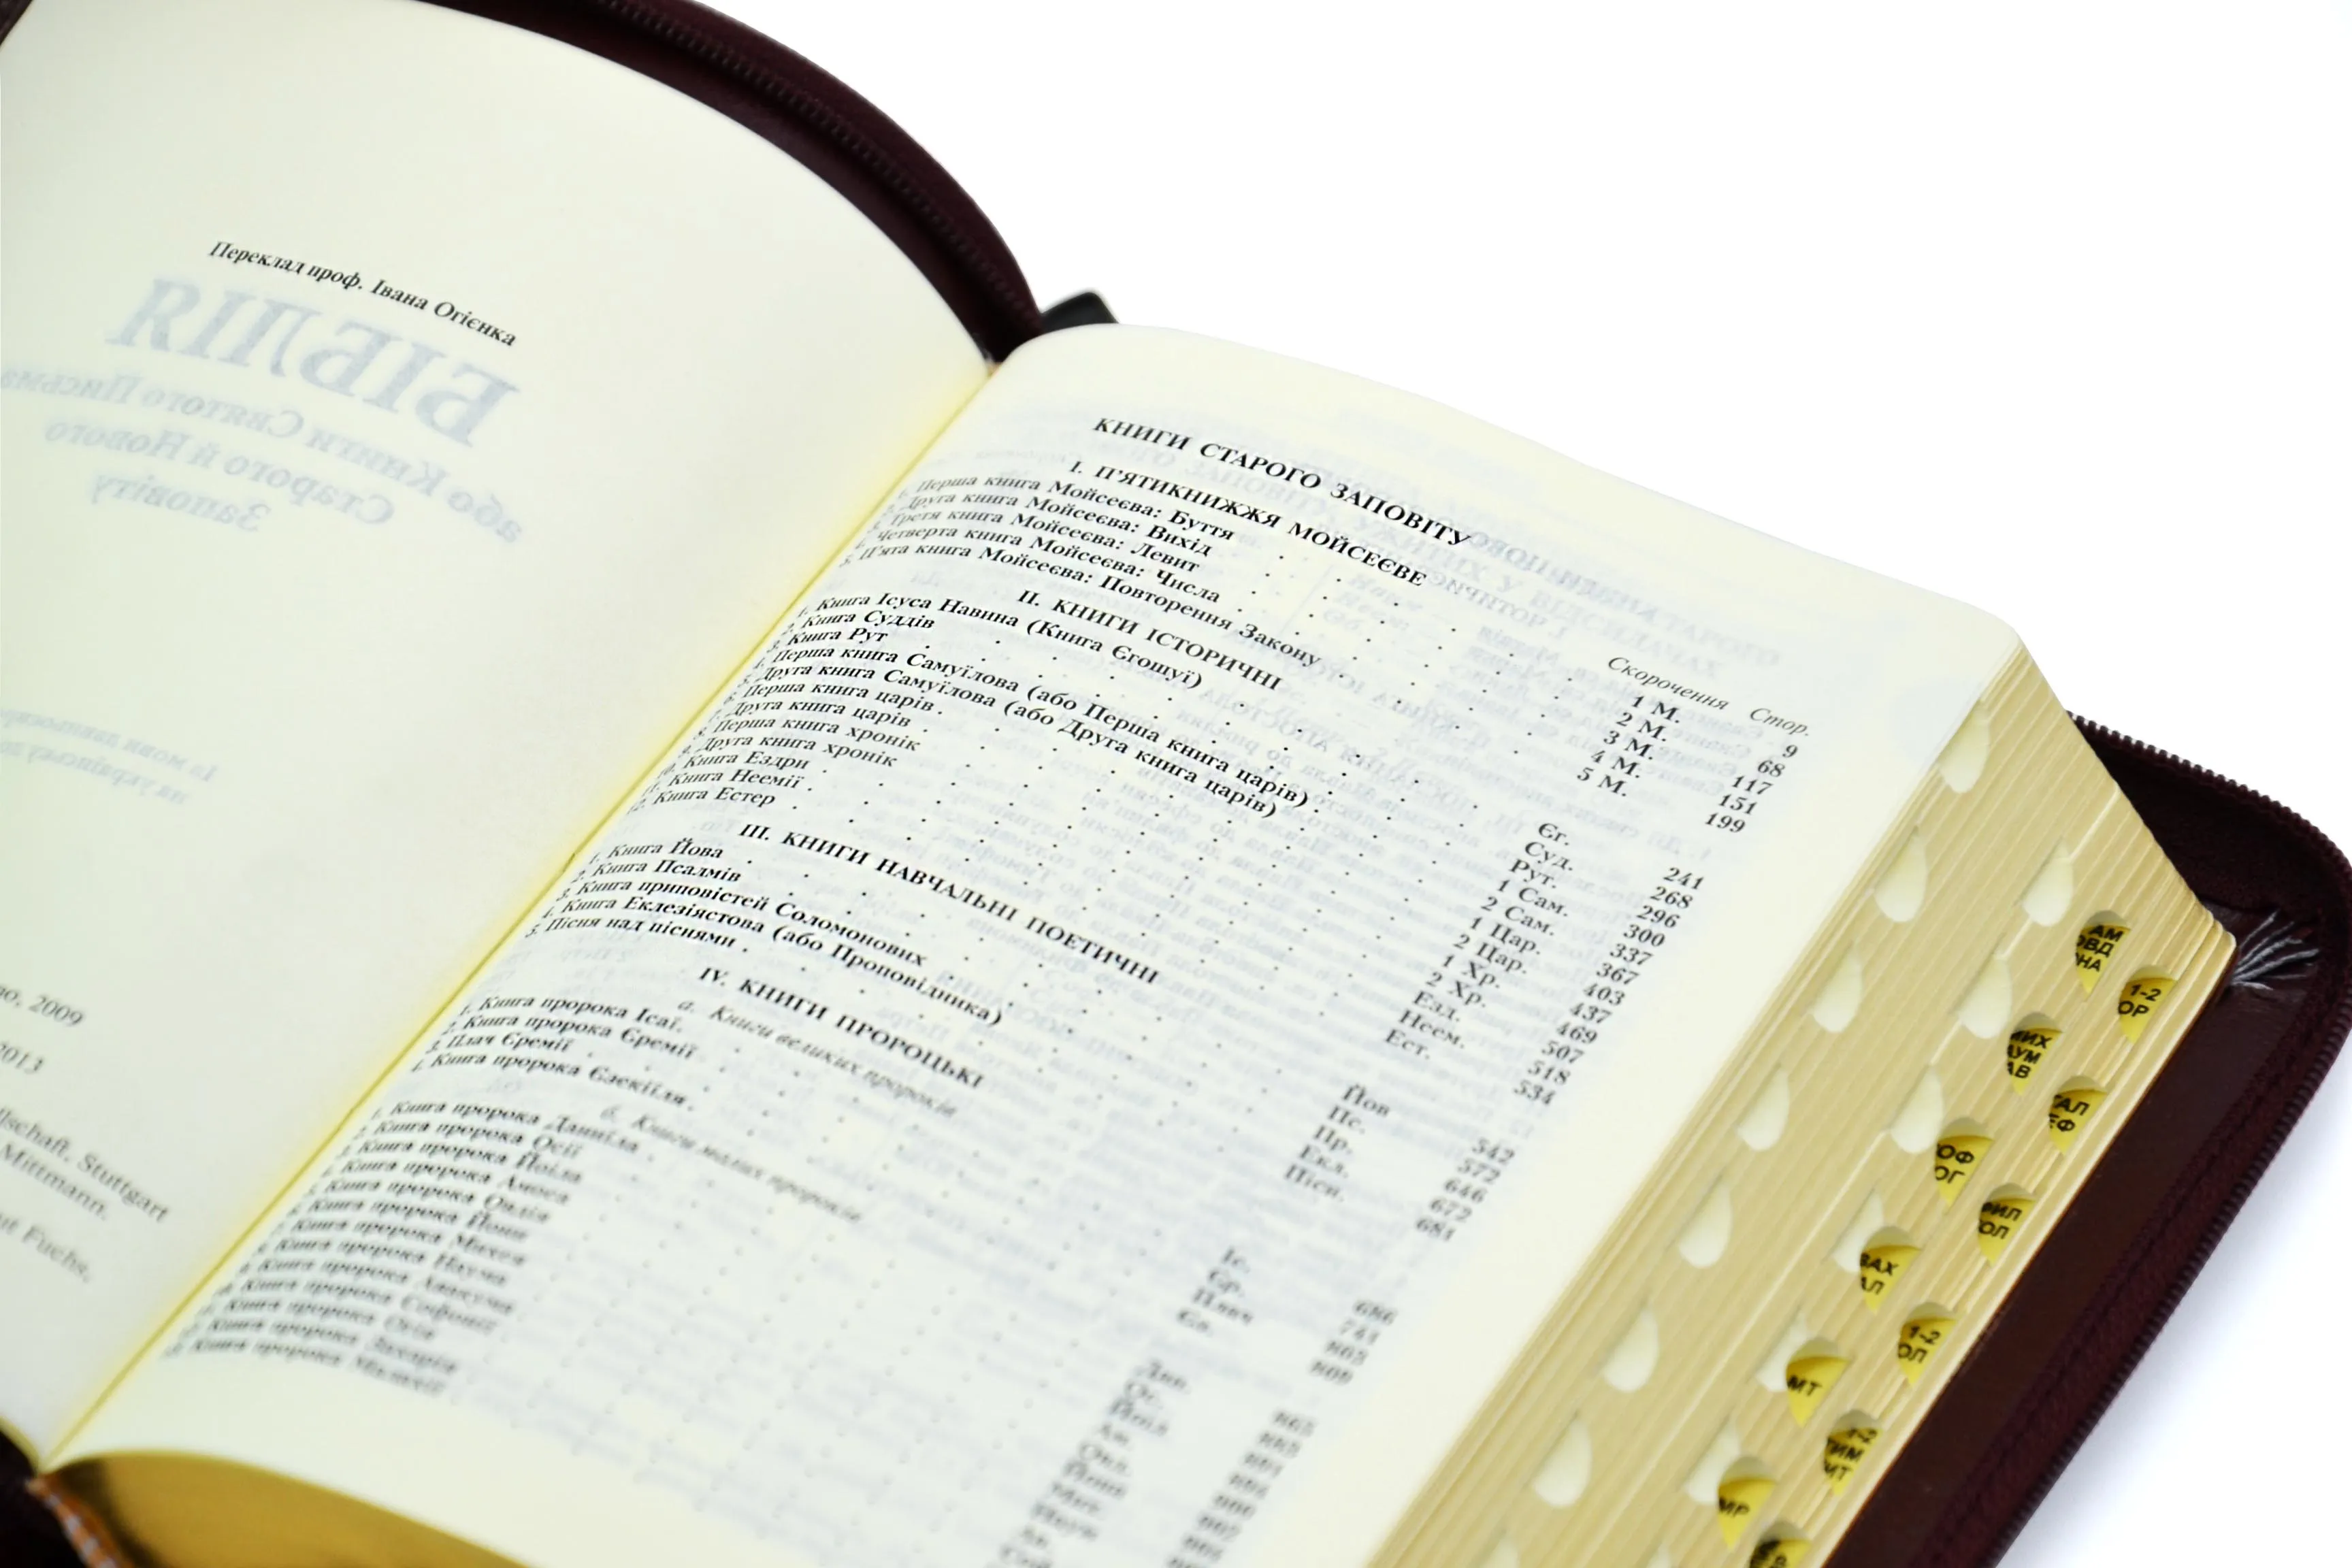 Переклад проф. Івана Огієнка
БІБЛІЯ
або Книги Святого Письма
Старого й Нового
Заповіту
із мови
на українську
2009
2013
Stuttgart
Mittmann.
Fuchs,
КНИГИ СТАРОГО ЗАПОВІТУ
І. П'ЯТИКНИЖЖЯ МОЙСЕЄВЕ
Скорочення Стор.
1. Перша книга Мойсеєва: Буття 1 М. 9
2. Друга книга Мойсеєва: Вихід 2 М. 68
3. Третя книга Мойсеєва: Левит 3 М. 117
4. Четверта книга Мойсеєва: Числа 4 М. 151
5. П'ята книга Мойсеєва: Повторення Закону 5 М. 199
ІІ. КНИГИ ІСТОРИЧНІ
1. Книга Ісуса Навина (Книга Єгошуї) Єг. 241
2. Книга Суддів Суд. 268
3. Книга Рут Рут. 296
4. Перша книга Самуїлова (або Перша книга царів) 1 Сам. 300
5. Друга книга Самуїлова (або Друга книга царів) 2 Сам. 337
6. Перша книга царів 1 Цар. 367
7. Друга книга царів 2 Цар. 403
8. Перша книга хронік 1 Хр. 437
9. Друга книга хронік 2 Хр. 469
10. Книга Ездри Езд. 507
11. Книга Неемії Неем. 518
12. Книга Естер Ест. 534
ІІІ. КНИГИ НАВЧАЛЬНІ ПОЕТИЧНІ
1. Книга Йова Йов 542
2. Книга Псалмів Пс. 572
3. Книга приповістей Соломонових Пр. 646
4. Книга Еклезіястова (або Проповідника) Екл. 672
5. Пісня над піснями Пісн. 681
IV. КНИГИ ПРОРОЦЬКІ
а. Книги великих пророків
1. Книга пророка Ісаї Іс. 686
2. Книга пророка Єремії Єр. 741
3. Плач Єремії Плач 803
4. Книга пророка Єзекіїля Єз. 809
б. Книги малих пророків
1. Книга пророка Даниїла Дан.
2. Книга пророка Осії Ос.
3. Книга пророка Йоіла Йоіл
4. Книга пророка Амоса Ам.
5. Книга пророка Овдія Овд.
6. Книга пророка Йони Йона
7. Книга пророка Михея Мих.
8. Книга пророка Наума Наум
9. Книга пророка Авакума Ав.
10. Книга пророка Софонії Соф.
11. Книга пророка Огія
12. Книга пророка Захарія
13. Книга пророка Малахії
АМ
ОВД
1-2
ОР
МИХ
АВ
ГАЛ
ЕФ
СОФ
ОГ
ФИЛ
КОЛ
ЗАХ
МАЛ
1-2
СОЛ
МТ
1-2
ТИМ
ТИТ
МР